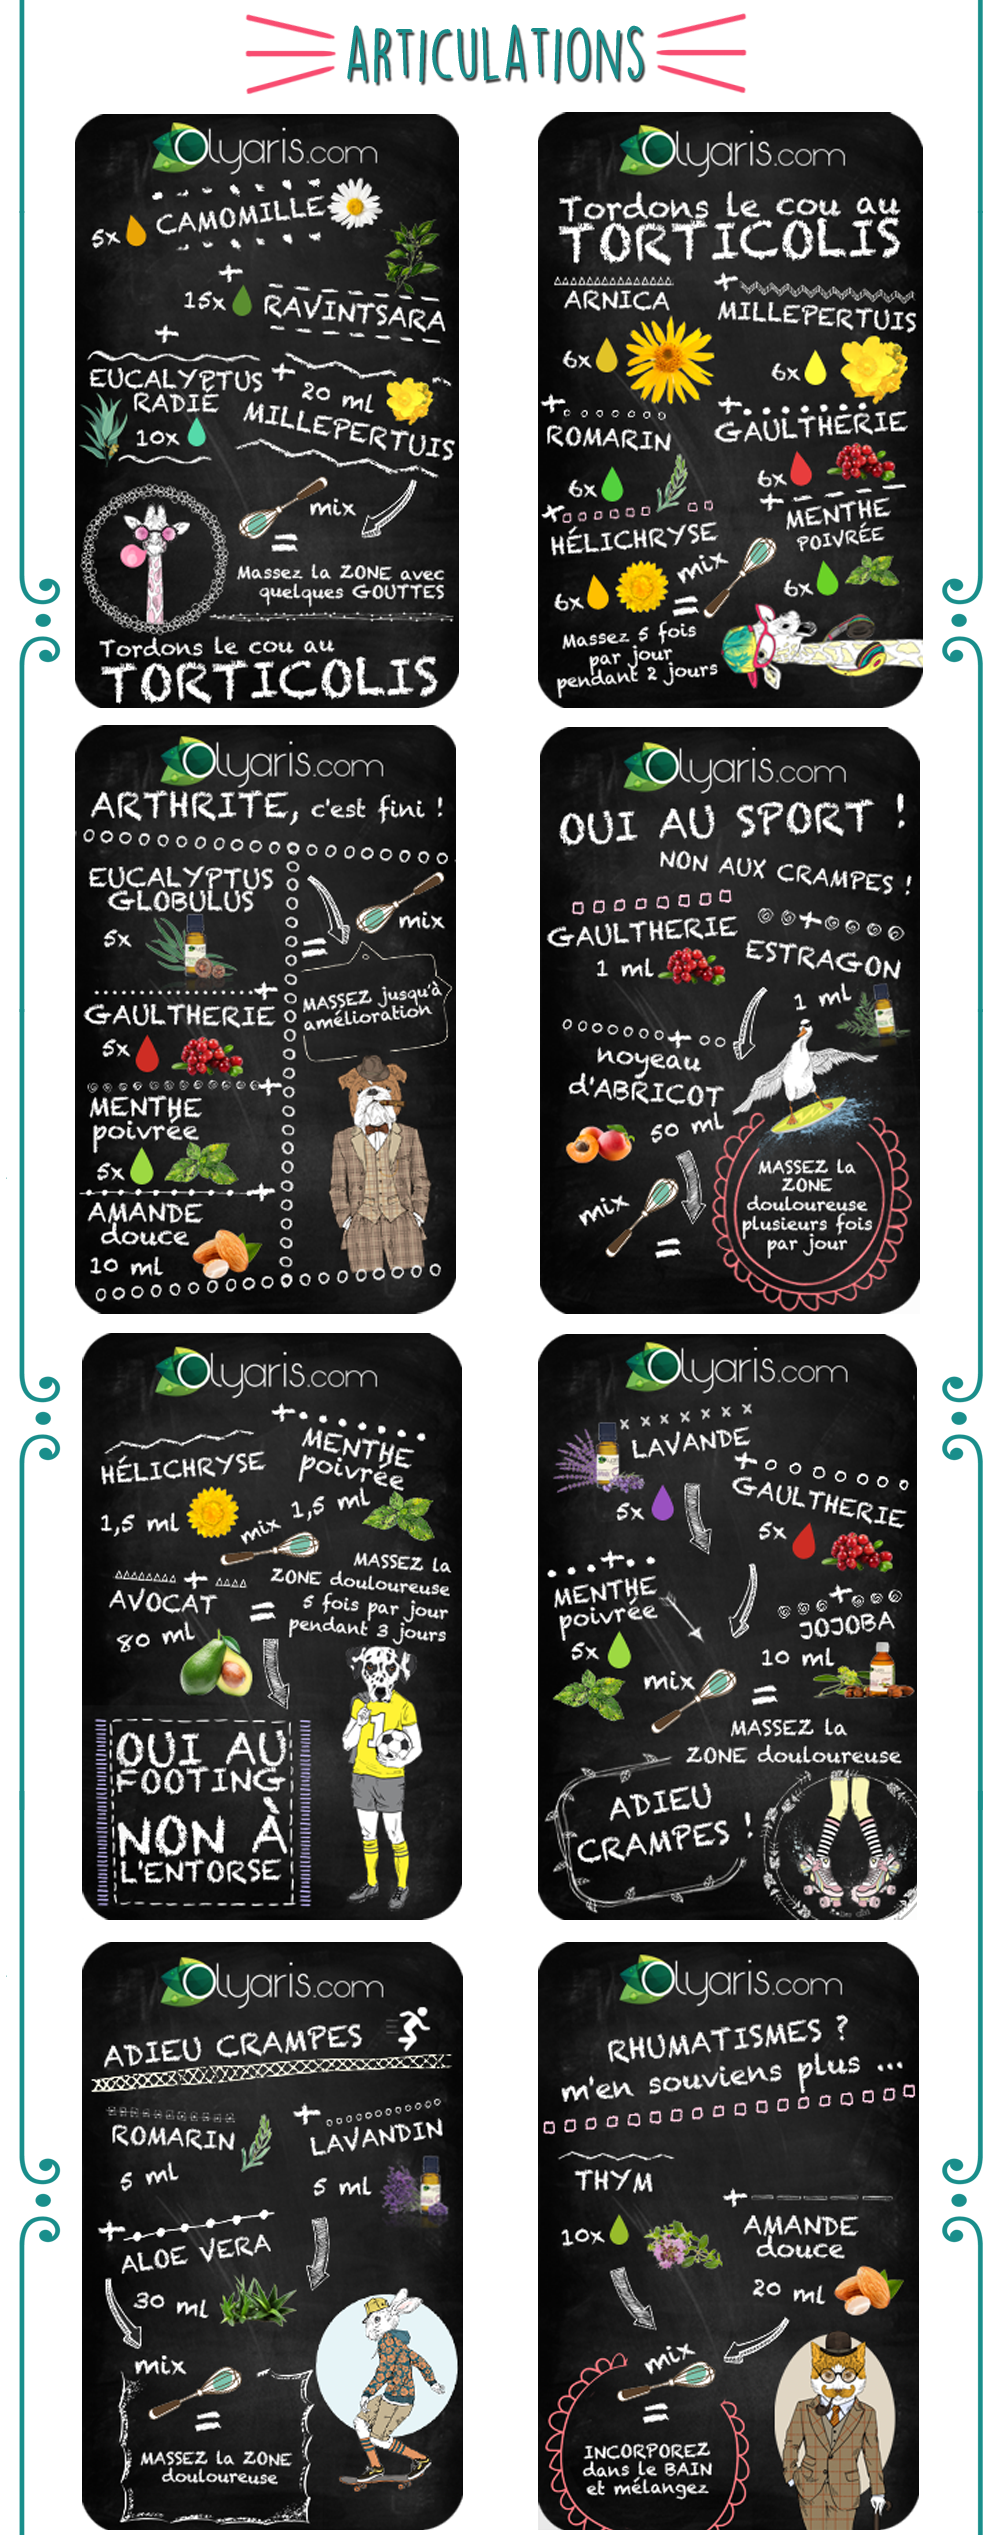 ARTICULATIONS
Olyaris.com
5x CAMOMILLE
+
15x RAVINTSARA
+
EUCALYPTUS
RADIÉ
10x
+ 20 ml
MILLEPERTUIS
mix
=
Massez la ZONE avec
quelques GOUTTES
Tordons le cou au
TORTICOLIS
Olyaris.com
Tordons le cou au
TORTICOLIS
ARNICA
6x
+
MILLEPERTUIS
6x
+
ROMARIN
6x
+
GAULTHERIE
6x
+
HÉLICHRYSE
6x
+
MENTHE
POIVRÉE
6x
mix
=
Massez 5 fois
par jour
pendant 2 jours
Olyaris.com
ARTHRITE, c'est fini !
EUCALYPTUS
GLOBULUS
5x
+
GAULTHERIE
5x
+
MENTHE
poivrée
5x
+
AMANDE
douce
10 ml
mix
=
MASSEZ jusqu'à
amélioration
Olyaris.com
OUI AU SPORT !
NON AUX CRAMPES !
GAULTHERIE
1 ml
+
ESTRAGON
1 ml
+
noyeau
d'ABRICOT
50 ml
mix
=
MASSEZ la
ZONE
douloureuse
plusieurs fois
par jour
Olyaris.com
HÉLICHRYSE
1,5 ml
+
MENTHE
poivrée
1,5 ml
mix
+
AVOCAT
80 ml
=
MASSEZ la
ZONE douloureuse
5 fois par jour
pendant 3 jours
OUI AU
FOOTING
NON À
L'ENTORSE
1
Olyaris.com
LAVANDE
5x
+
GAULTHERIE
5x
+
MENTHE
poivrée
5x
+
JOJOBA
10 ml
mix
=
MASSEZ la
ZONE douloureuse
ADIEU
CRAMPES !
Olyaris.com
ADIEU CRAMPES
ROMARIN
5 ml
+
LAVANDIN
5 ml
+
ALOE VERA
30 ml
mix
=
MASSEZ la ZONE
douloureuse
Olyaris.com
RHUMATISMES ?
m'en souviens plus ...
THYM
10x
+
AMANDE
douce
20 ml
mix
=
INCORPOREZ
dans le BAIN
et mélangez